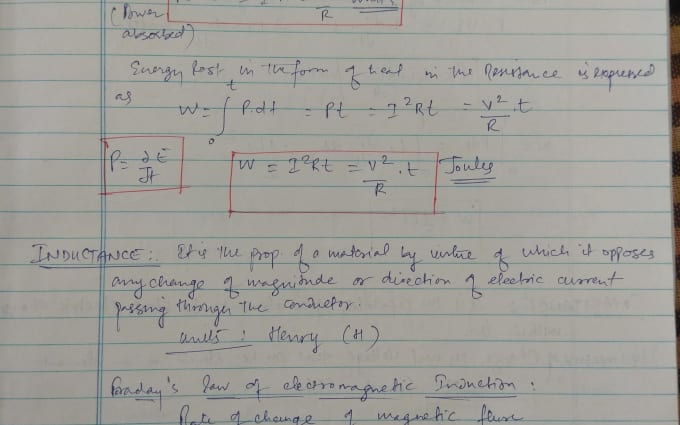 (Power
R
absorbed)
Energy lost in the form of heat in the Resistance is expressed
as W = ∫₀ᵗ P.dt = Pt = I²Rt = V²/R .t
P = ∂E/∂t
W = I²Rt = V²/R .t Joules
INDUCTANCE:. It is the prop. of a material by virtue of which it opposes
any change of magnitude or direction of electric current
passing through the conductor.
units : Henry (H)
Faraday's Law of electromagnetic Induction :
Rate of change of magnetic flux